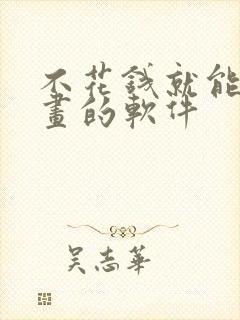 不花錢就能
畫的軟件
吳志華